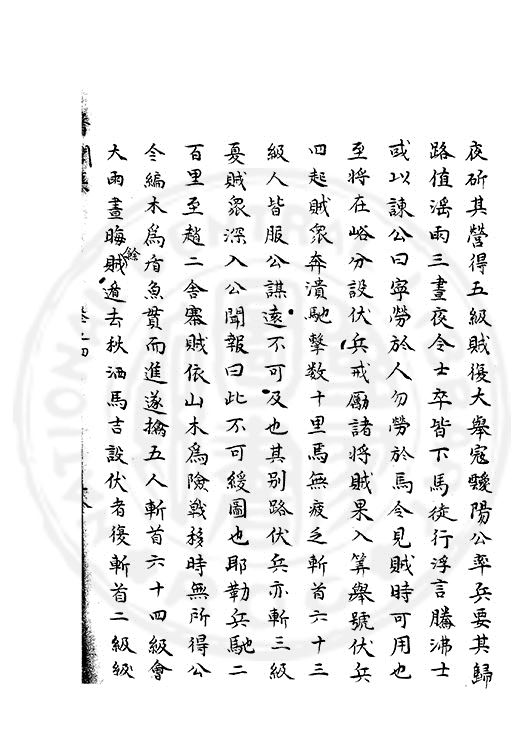 夜斫其營得五級賊復大舉寇靉陽公率兵要其歸
路值滛雨三晝夜令士卒皆下馬徒行浮言騰沸士
或以諫公曰寧勞於人勿勞於馬今見賊時可用也
至將在峪分設伏兵戒勵諸將賊果入筭舉號伏兵
四起賊衆奔潰馳擊数十里馬無疲乏斬首六十三
級人皆服公謀遠不可及也其别路伏兵亦斬三級
憂賊衆深入公聞報曰此不可緩圖也耶勒兵馳二
百里至趙二舍寨賊依山木爲險戰移時無所得公
令編木爲盾魚貫而進遂擒五人斬首六十四級會
大雨晝晦餘賊遁去秋洒馬吉設伏者復斬首二級級
卷之四